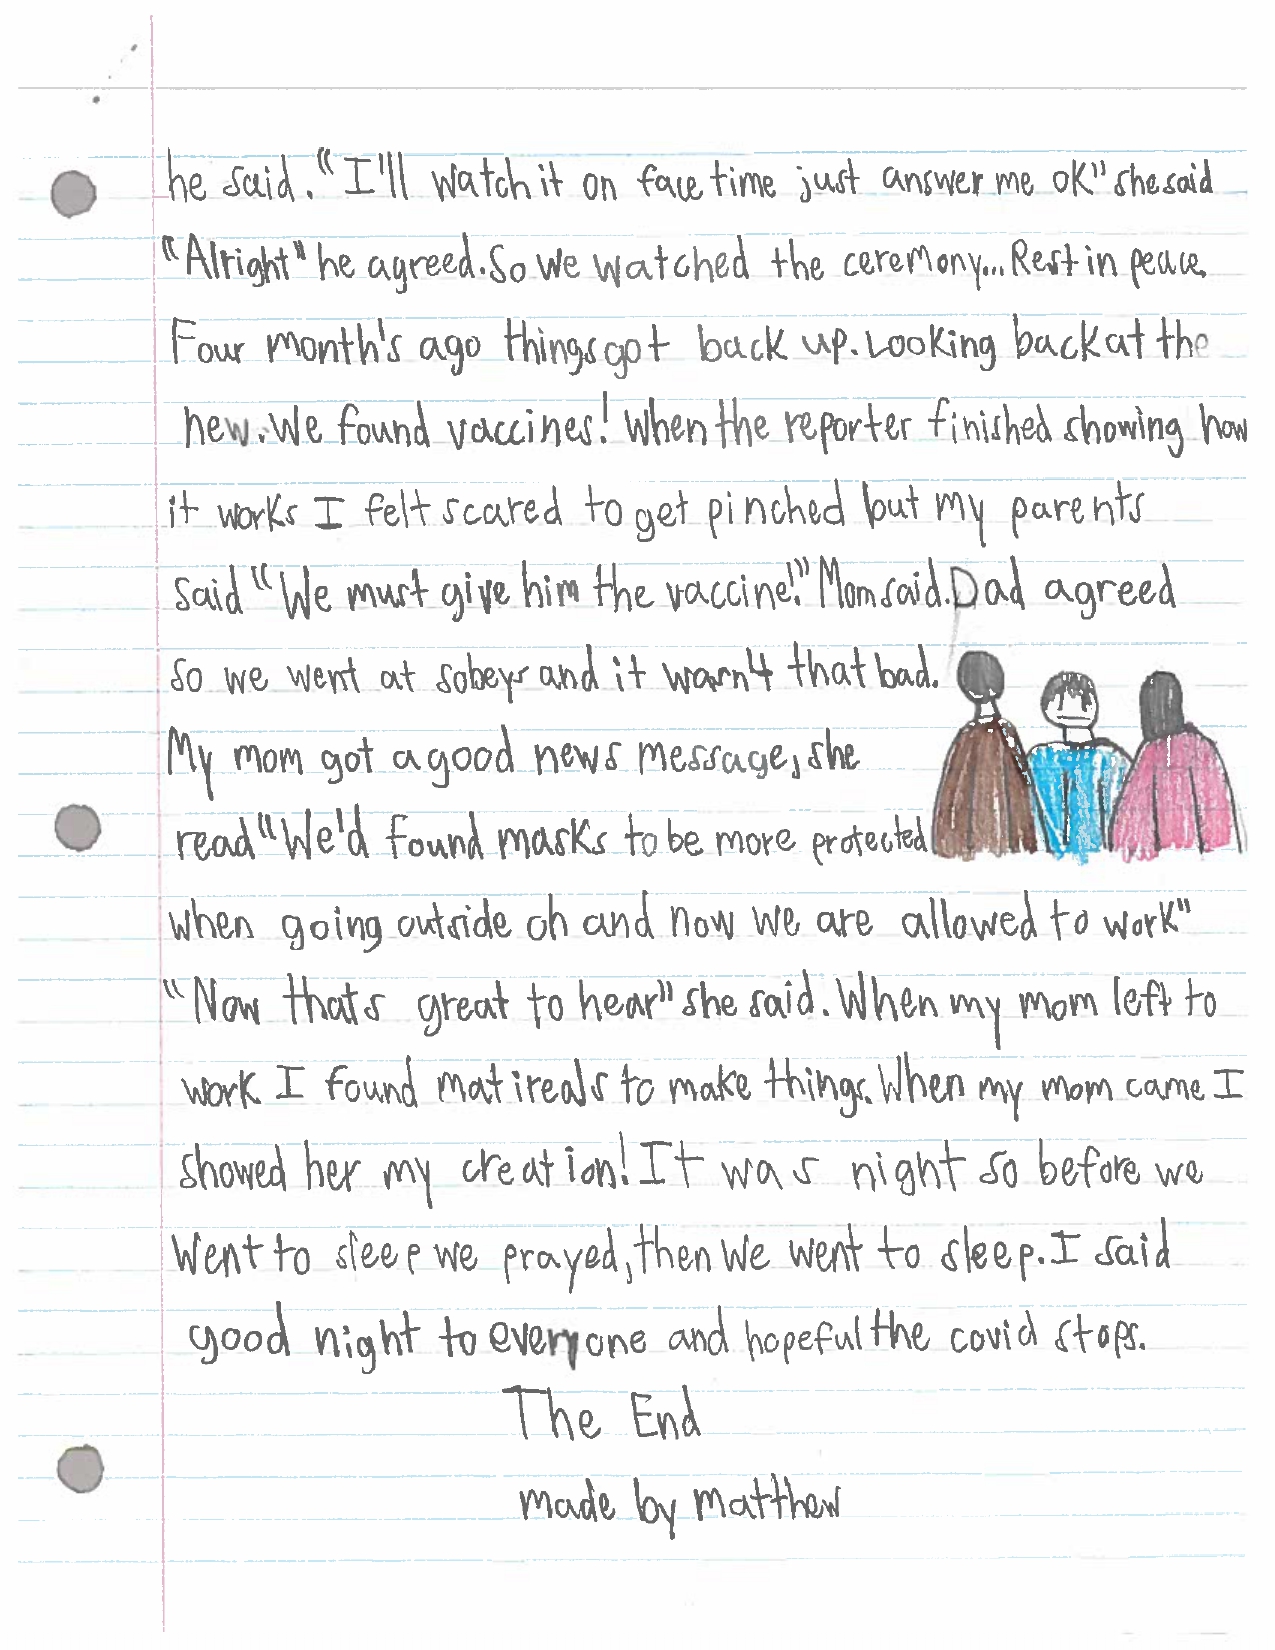 he said. "I'll watch it on face time just answer me ok" she said
"Alright" he agreed. So we watched the ceremony... Rest in peace.
Four month's ago things got back up. Looking back at the
new. We found vaccines! When the reporter finished showing how
it works I felt scared to get pinched but my parents
said "We must give him the vaccine!" Mom said. Dad agreed
so we went at sobeys and it wasn't that bad.
My mom got a good news message, she
read "We'd found masks to be more protected
when going outside oh and now we are allowed to work"
"Now thats great to hear" she said. When my mom left to
work I found matireals to make things. When my mom came I
showed her my creation! It was night so before we
went to sleep we prayed, then we went to sleep. I said
good night to everyone and hopeful the covid stops.
The End
made by matthew